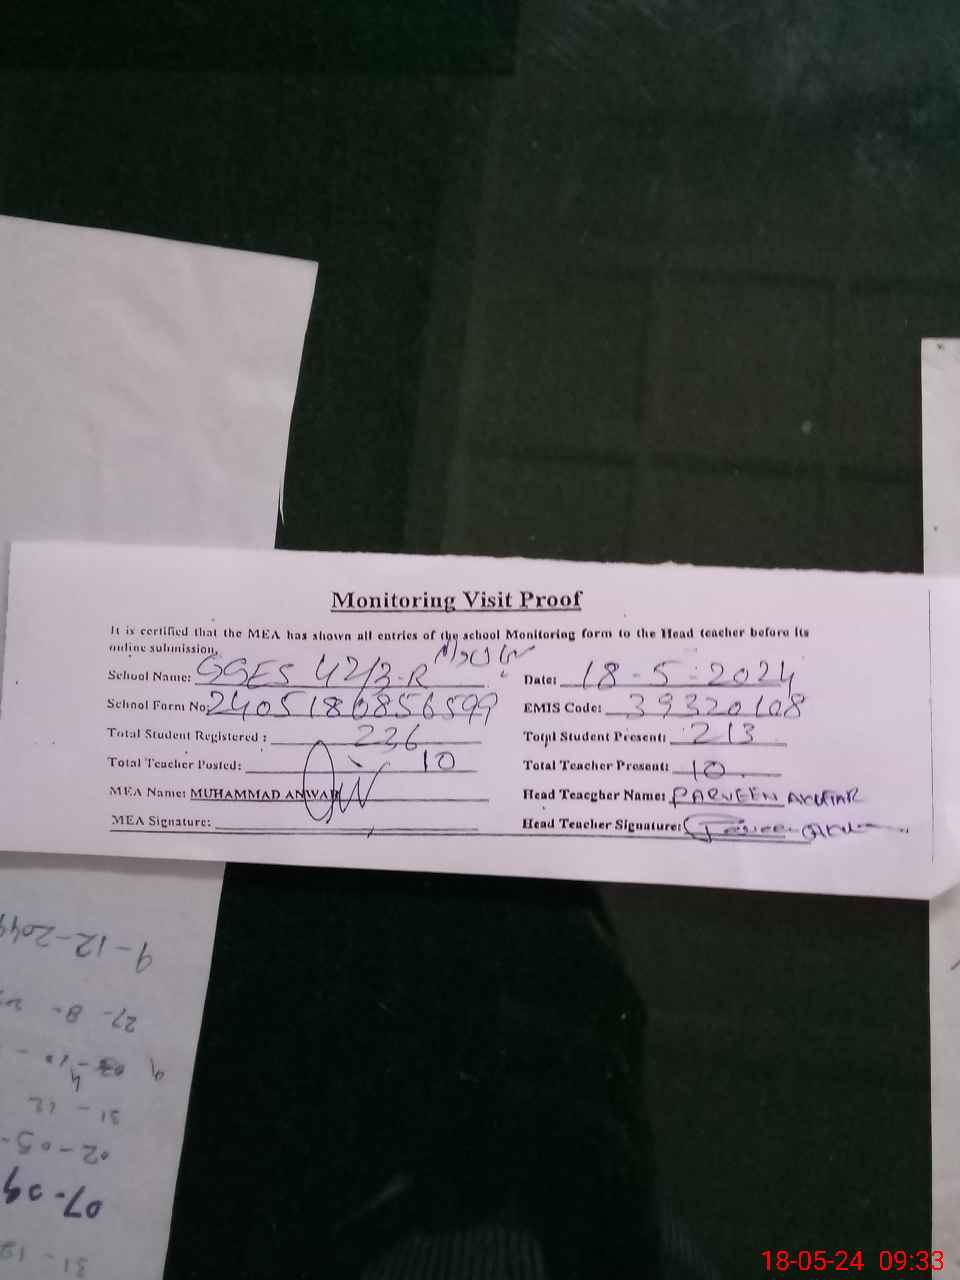 Monitoring Visit Proof
It is certified that the MEA has shown all entries of the school Monitoring form to the Head teacher before its
online submission.
School Name: GGES 42/3-R
Date: 18-5-2024
School Form No: 2405180856599
EMIS Code: 39320108
Total Student Registered : 236
Total Student Present: 213
Total Teacher Posted: 10
Total Teacher Present: 10
MEA Name: MUHAMMAD ANWAR
Head Teacgher Name: PARVEEN AKHTAR
MEA Signature:
Head Teacher Signature:
9-12-2044
27-8-
31-12
02-05-
07-09
31-12
18-05-24 09:33